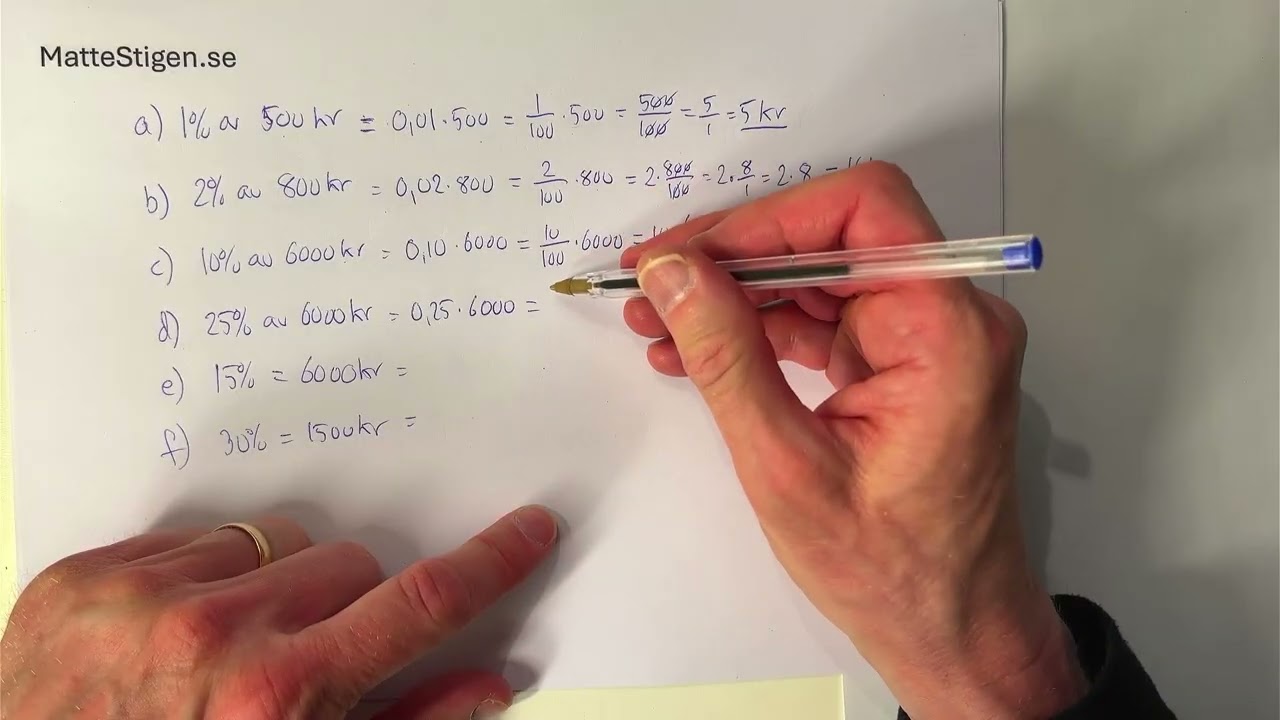 MatteStigen.se
a) 1% av 500 kr = 0,01 · 500 = 1/100 · 500 = 500/100 = 5/1 = 5 kr
b) 2% av 800 kr = 0,02 · 800 = 2/100 · 800 = 2 · 800/100 = 2 · 8/1 = 2 · 8 =
c) 10% av 6000 kr = 0,10 · 6000 = 10/100 · 6000 =
d) 25% av 6000 kr = 0,25 · 6000 =
e) 15% = 6000 kr =
f) 30% = 1500 kr =